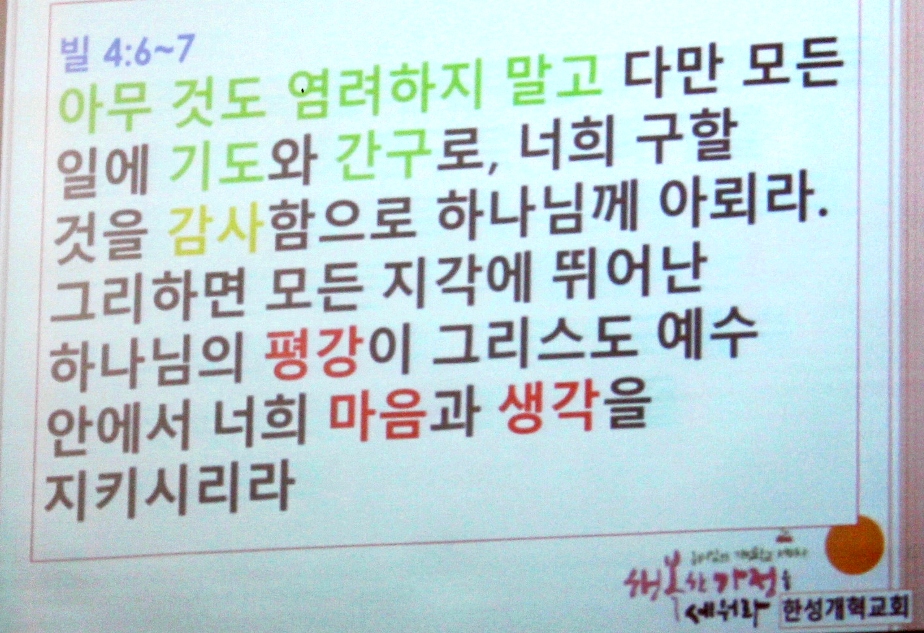 빌 4:6~7
아무 것도 염려하지 말고 다만 모든
일에 기도와 간구로, 너희 구할
것을 감사함으로 하나님께 아뢰라.
그리하면 모든 지각에 뛰어난
하나님의 평강이 그리스도 예수
안에서 너희 마음과 생각을
지키시리라
행복한 가정을
세워라
한성개혁교회